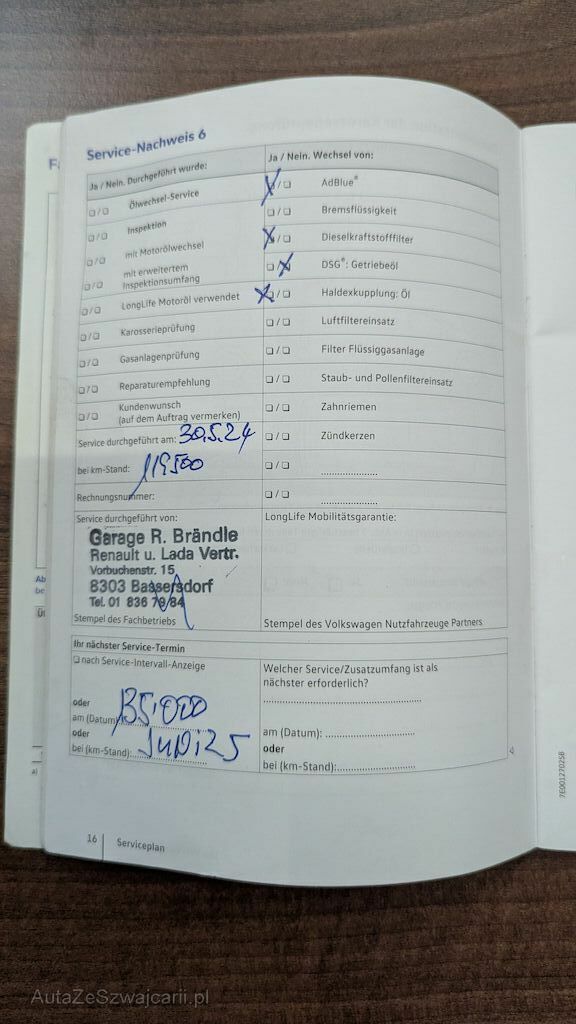 Service-Nachweis 6
Ja / Nein. Durchgeführt wurde:
❑ / ❑ Ölwechsel-Service
❑ / ❑ Inspektion
❑ / ❑ mit Motorölwechsel
❑ / ❑ mit erweitertem
Inspektionsumfang
❑ / ❑ LongLife Motoröl verwendet
❑ / ❑ Karosserieprüfung
❑ / ❑ Gasanlagenprüfung
❑ / ❑ Reparaturempfehlung
❑ / ❑ Kundenwunsch
(auf dem Auftrag vermerken)
Service durchgeführt am: 30.5.24
bei km-Stand: 119500
Rechnungsnummer:
Service durchgeführt von:
Garage R. Brändle
Renault u. Lada Vertr.
Vorbuchenstr. 15
8303 Bassersdorf
Tel. 01 836 79 84
Stempel des Fachbetriebs
Ja / Nein. Wechsel von:
X / ❑ AdBlue®
❑ / ❑ Bremsflüssigkeit
X / ❑ Dieselkraftstofffilter
❑ / X DSG®: Getriebeöl
X / ❑ Haldexkupplung: Öl
❑ / ❑ Luftfiltereinsatz
❑ / ❑ Filter Flüssiggasanlage
❑ / ❑ Staub- und Pollenfiltereinsatz
❑ / ❑ Zahnriemen
❑ / ❑ Zündkerzen
❑ / ❑ ....................
❑ / ❑ ....................
LongLife Mobilitätsgarantie:
Stempel des Volkswagen Nutzfahrzeuge Partners
Ihr nächster Service-Termin
❑ nach Service-Intervall-Anzeige
oder
am (Datum): 135.000
oder
bei (km-Stand): Juni 25
Welcher Service/Zusatzumfang ist als
nächster erforderlich?
am (Datum): ....................
oder
bei (km-Stand): ....................
16 Serviceplan
7E0012702SB
AutaZeSzwajcarii.pl